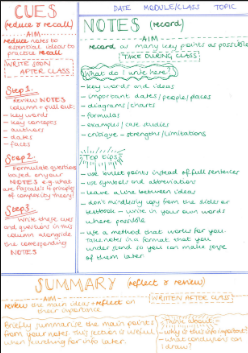 CUES
(reduce & recall)
- AIM -
reduce notes to
essential ideas to
practice recall
WRITE SOON
AFTER CLASS!
Step 1
Review NOTES
column + pull out:
- key words
- key concepts
- authors
- dates
- facts
Step 2
Formulate question
based on your
NOTES e.g. what
are
of complexity theory?
Step 3
Write these cues
and questions in this
column alongside
the corresponding
NOTES
DATE MODULE/CLASS TOPIC
NOTES (record)
- AIM -
record as many key points as possible
TAKE DURING CLASS!
What do I write here?
- key words and ideas
- important dates/people/places
- diagrams/charts
- formulas
- examples/case studies
- critique - strengths/limitations
Top tips
- use bullet points instead of full sentences
- use symbols and abbreviations
- leave a line between ideas
- don't mindlessly copy from the slides or
textbook - write in your own words
where possible
- use a method that works for you.
Take notes in a format that you
understand so you can make sense
of them later.
SUMMARY (reflect & review)
- AIM -
review the main ideas + reflect on
their importance
WRITTEN AFTER CLASS!
Briefly summarize the main points
from your notes. This section is useful
when searching for info later.
Think about:
- why is this info important?
- what conclusions can
I draw?